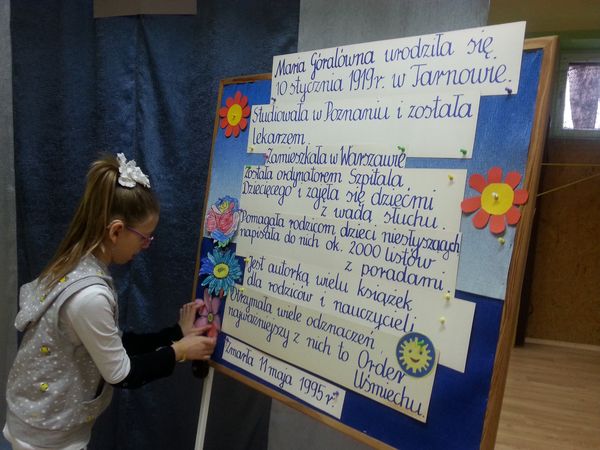 Maria Góralówna urodziła się
10 stycznia 1919 r. w Tarnowie.
Studiowała w Poznaniu i została
lekarzem.
Zamieszkała w Warszawie,
została ordynatorem Szpitala
Dziecięcego i zajęła się dziećmi
z wadą słuchu.
Pomagała rodzicom dzieci niesłyszących
napisała do nich ok. 2000 listów
z poradami.
Jest autorką wielu książek
dla rodziców i nauczycieli
Otrzymała wiele odznaczeń,
najważniejszy z nich to Order
Uśmiechu.
Zmarła 11 maja 1995 r.